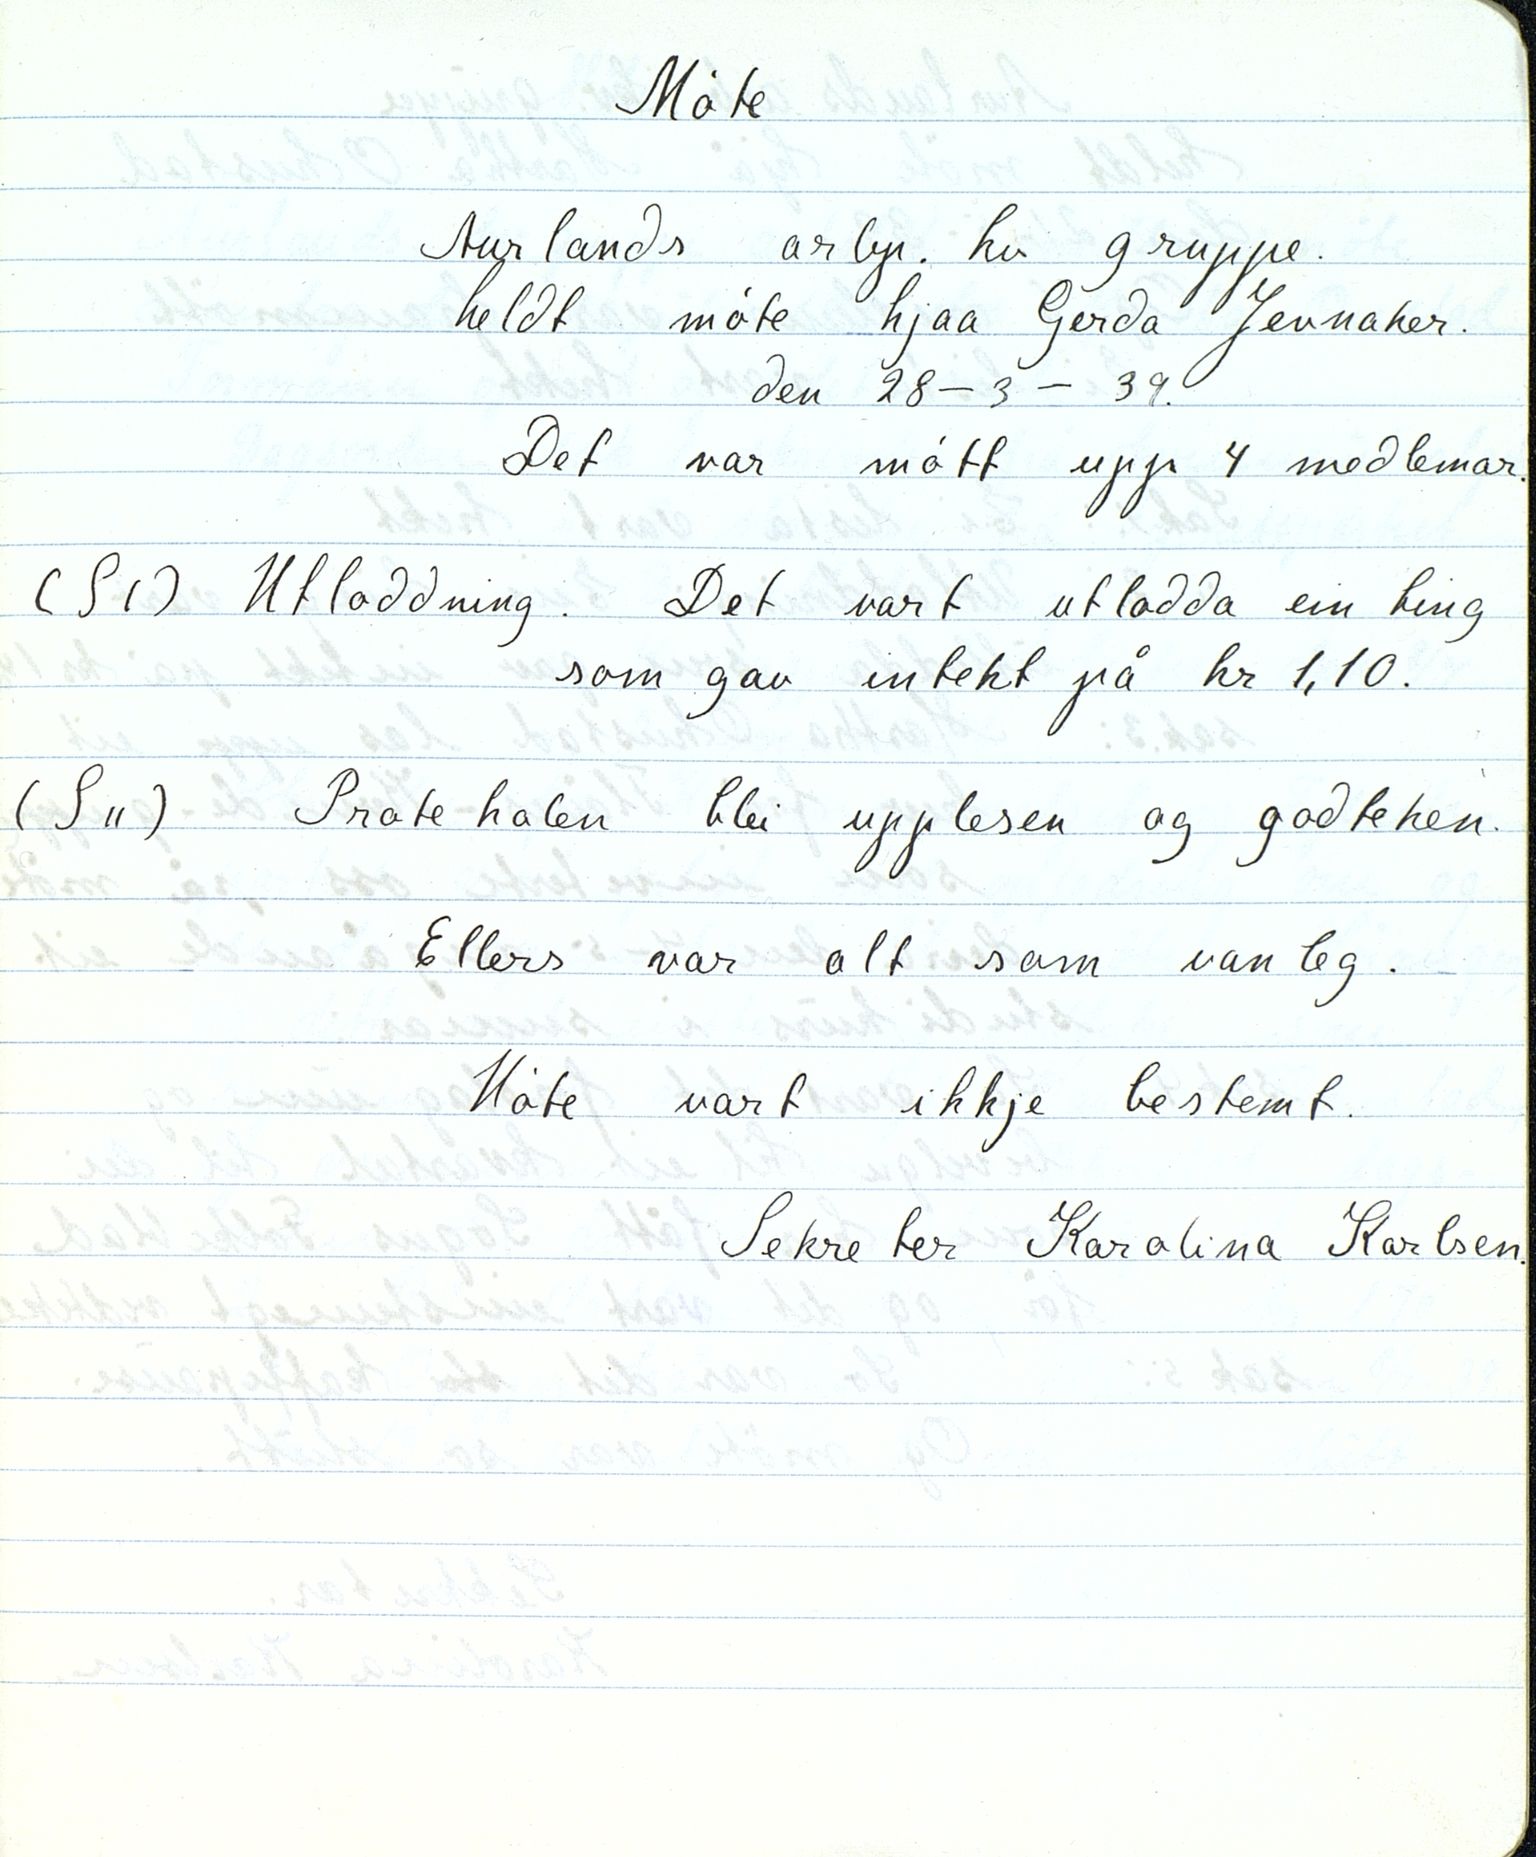 Móte
Aurlands arbp. kv gruppe.
heldt móte hjaa Gerda Jevnaker.
den 28-3-39.
Det var mótt upp 4 medlemar.
(S1) Utloddning. Det vart utlodda ein ting
som gav intekt på kr 1,10.
(S11) Protekolen blei upplesen og godteken.
Ellers var alt som vanleg.
Móte vart ikkje bestemt.
Sekreter Karolina Karlsen.